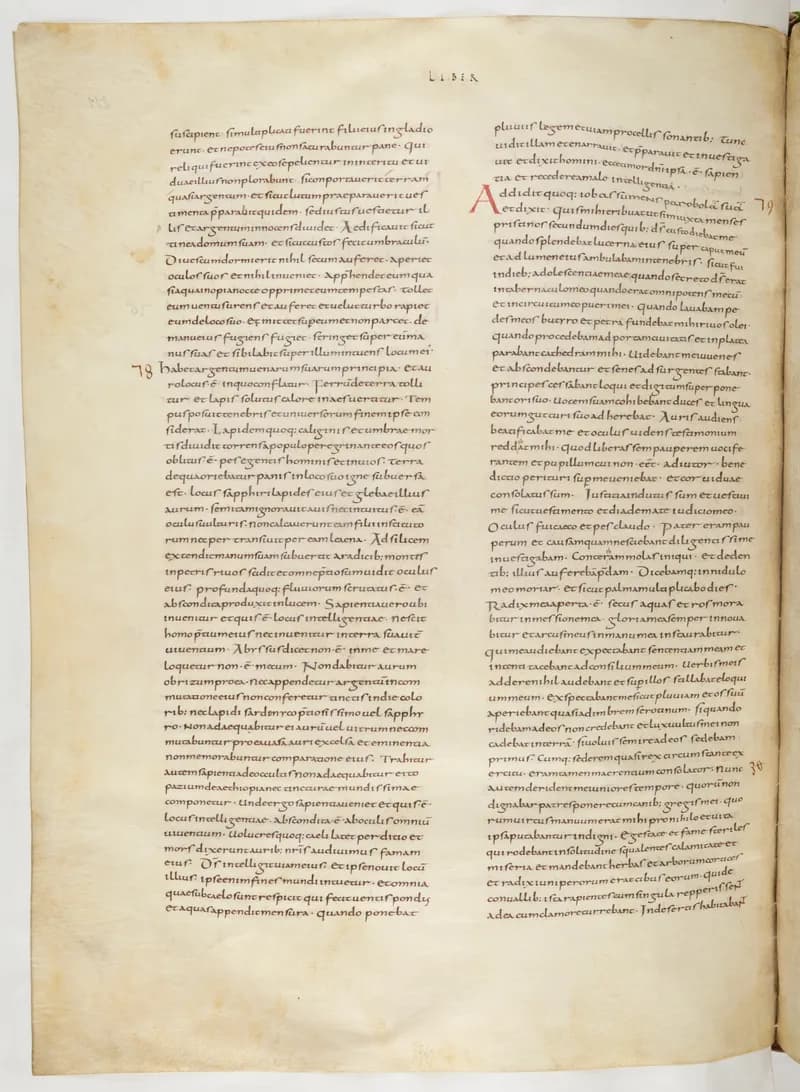 LIBER
sus sapient· si multiplicati fuerint filii eius in gladio
erunt· et nepotes eius non saturabuntur pane· Qui
reliqui fuerint ex eo sepelientur in interitu et ui
duae illius non plorabunt· Si comportauerit terram
quasi argentum· et sicut lutum praeparauerit ues
amenta p̄parabit quidem· sed iustus uestietur il
lis et argentum innocens diuidet· Aedificauit sicut
tinea domum suam· et sicut custos fecit umbraculū·
Diues cum dormierit nihil secum auferet· aperiet
oculos suos et nihil inueniet· Apprehendet eum qua
si aqua inopia nocte opprimet eum tempestas· tollet
eum uentus urens et auferet et uelut turbo rapiet
eum de loco suo· Et mittet super eum et non parcet· de
manu eius fugiens fugiet· stringet super eū ma
nus suas et sibilabit super illum intuens locum ei·
78 Habet argentum uenarum suarum principia· et au
ro locus ē· in quo conflatur· Ferrū de terra tolli
tur· et lapis solutus calore in aes uertitur· Tem
pus posuit tenebris et uniuersorum finem ipse con
siderat· Lapidem quoq; caliginis et umbrae mor
tis diuidit torrens a populo peregrinante eos quos
oblitus ē· pes egentis hominis et inuios· Terra
de qua oriebatur panis in loco suo igne subuersa
est· locus sapphiri lapides eius et glebae illius
aurum· semitam ignorauit auis nec intuitus ē· eā
oculus uulturis· non calcauerunt eam filii institoto
rum nec pertransiuit per eam laena· Ad silicem
extendit manum suam subuertit a radicib; montes
in petris riuos scidit et omne p̄tiosum uidit oculus
eius· profunda quoq; fluuiorum scrutatus· ē· et
abscondita produxit in lucem· Sapientia uero ubi
inuenitur et quis· ē· locus intellegentiae· nescit
homo p̄tium eius nec inuenitur in terra suauit̄
uiuentium· Abyssus dicet non· ē· in me et mare
loquetur non· ē· mecum· Non dabitur aurum
obrizum pro ea· nec appendetur argentū in com
mutatione eius non conferetur tinctis indiae colo
rib; nec lapidi sardonico p̄tiosissimo uel sapphi
ro· Non adaequabitur ei aurū uel uitrum nec com
mutabuntur pro ea uasa auri excelsa et eminentia
non memorabuntur comparatione eius· Trahitur
autem sapientia de occultis non adaequabitur ei to
pazium de aethiopia nec tincturae mundissimae
componetur· Unde ergo sapientia ueniet et quis· ē·
locus intellegentiae· abscondita· ē· ab oculis omniū
uiuentium· Uolucres quoq; caeli latet perditio et
mors dixerunt aurib; nr̄is audiuimus famam
eius· D̄s intelligit uiam eius· et ipse nouit locū
illius ipse enim fines mundi intuetur· et omnia
quae sub caelo sunt respicit qui fecit uentis pondus
et aquas appendit mensura· quando ponebat
pluuiis legem et uiam procellis sonantib; tunc
uidit illam et enarrauit· et p̄parauit et inuestiga
uit et dixit homini· ecce timor dn̄i ipsa· ē· sapien
tia et recedere a malo intellegentia·
Addidit quoq; iob assumens parabolā suā 79
et dixit· Quis mihi tribuat ut sim iuxta menses
pristinos secundum dies quib; d̄s custodiebat me
quando splendebat lucerna eius super caput meū
et ad lumen eius ambulabam in tenebris· sicut fui
in dieb; adolescentiae meae quando secreto d̄s erat
in tabernaculo meo quando erat omnipotens mecū·
et in circuitu meo pueri mei· quando lauabam pe
des meos butyro et petra fundebat mihi riuos olei·
quando procedebam ad portam ciuitatis et in platea
parabant cathedram mihi· Uidebant me iuuenes
et abscondebantur et senes adsurgentes stabant·
principes cessabant loqui et digitum superpone
bant ori suo· Uocem suam cohibebant duces et lingua
eorum gutturi suo adherebat· Auris audiens
beatificabat me et oculus uidens testimonium
reddebat mihi· quod liberassem pauperem uocife
rantem et pupillum cui non· eēt· adiutor· bene
dictio perituri super me ueniebat· et cor uiduae
consolatus sum· Iustitia indutus sum et uestiui
me sicut uestimento et diademate iudicio meo·
Oculus fui caeco et pes claudo· Pater eram pau
perum et causam quam nesciebam diligentissime
inuestigabam· Conterebam molas iniqui· et de den
tib; illius auferebam p̄dam· Dicebamq; in nidulo
meo moriar· et sicut palma multiplicabo dies·
Radix mea aperta· ē· secus aquas et ros mora
bitur in messione mea· gloria mea semper innoua
bitur et arcus meus in manu mea instaurabitur·
qui me audiebant expectabant sententiam meam et
intenti tacebant ad consilium meum· Uerbis meis
addere nihil audebant et super illos stillabat eloqui
um meum· exspectabant me sicut pluuiam et os suū
aperiebant quasi ad imbrem serotinum· si quando
ridebam ad eos non credebant et lux uultus mei non
cadebat in terrā· si uoluissem ire ad eos sedebam
primus· Cumq; sederem quasi rex circumstante ex
ercitu· eram tamen maerentium consolator· Nunc
autem derident me iuniores tempore· quorū non
dignabar patres ponere cum canib; gregis mei· quo
rum uirtus manuum erat mihi pro nihilo et uita
ipsa putabantur indigni· Egestate et fame steriles
qui rodebant in solitudine squalentes calamitate et
miseria et mandebant herbas et arborum cortices
et radix iuniperorum erat cibus eorum· qui de
conuallib; ista rapientes cum singula repperissent
ad ea cum clamore currebant· In desertis habitabant